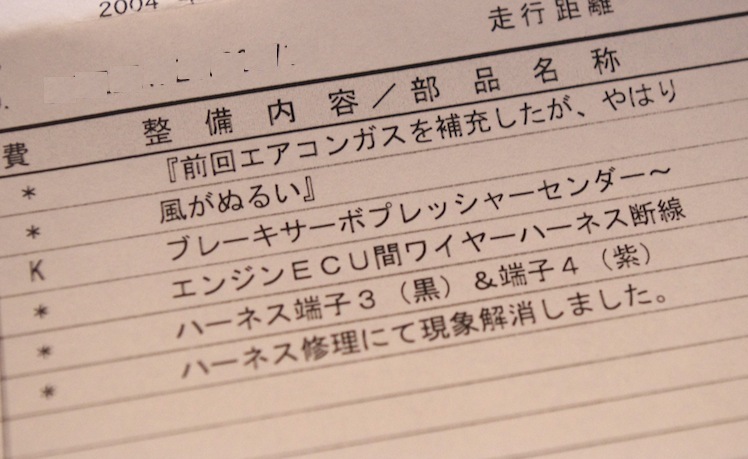 2004
走行距離
費 整備内容／部品名称
* 『前回エアコンガスを補充したが、やはり
* 風がぬるい』
K ブレーキサーボプレッシャーセンダー～
* エンジンＥＣＵ間ワイヤーハーネス断線
* ハーネス端子３（黒）＆端子４（紫）
* ハーネス修理にて現象解消しました。